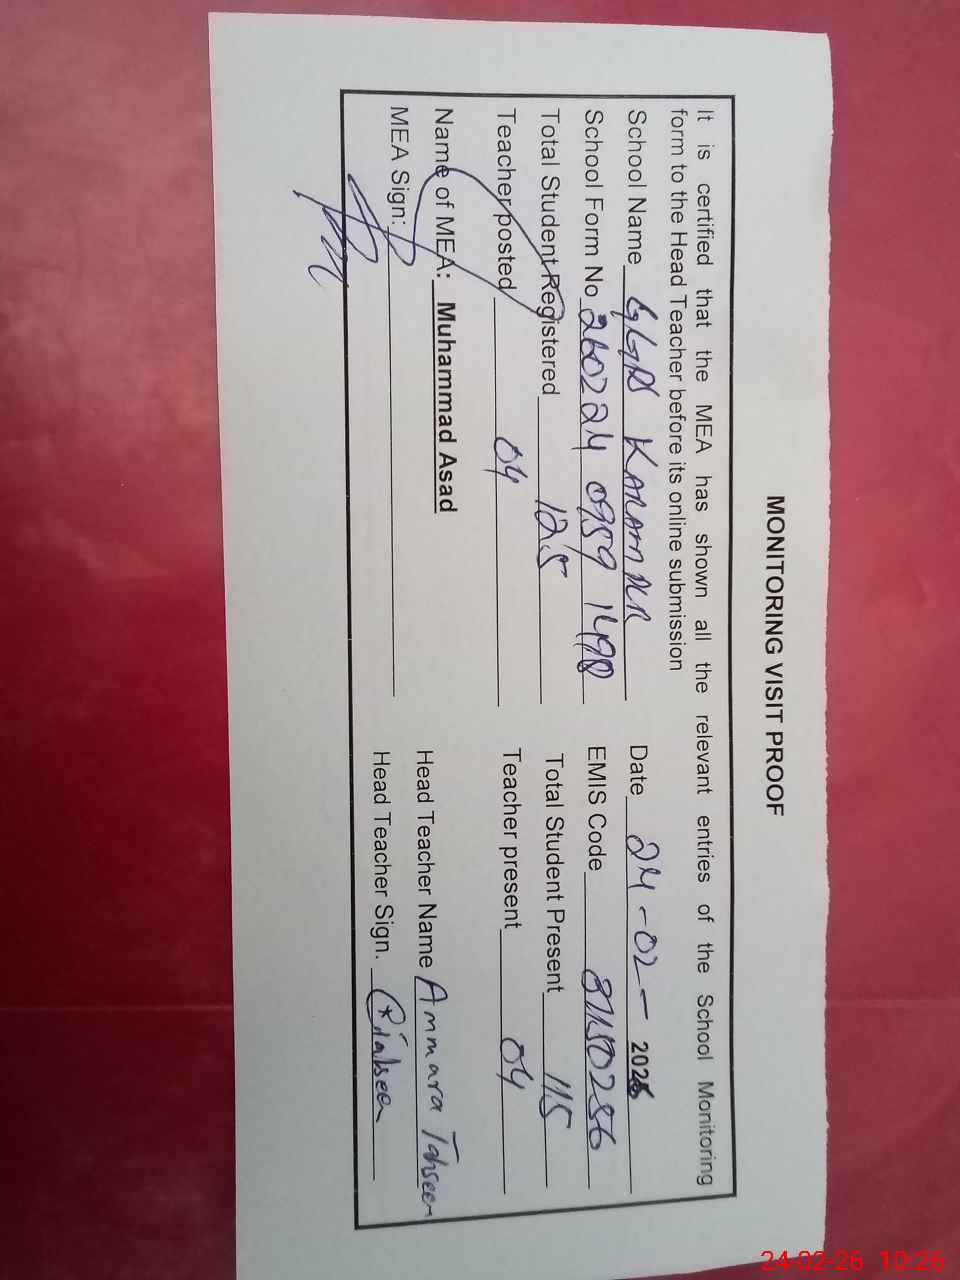 MONITORING VISIT PROOF
It is certified that the MEA has shown all the relevant entries of the School Monitoring
form to the Head Teacher before its online submission
School Name GGPS Date 24-02-2026
School Form No 260224 0959 1498 EMIS Code
Total Student Registered 125 Total Student Present 115
Teacher posted 04 Teacher present 04
Name of MEA: Muhammad Asad Head Teacher Name Ammara Tahseen
MEA Sign: Head Teacher Sign.
24-02-26 10:26